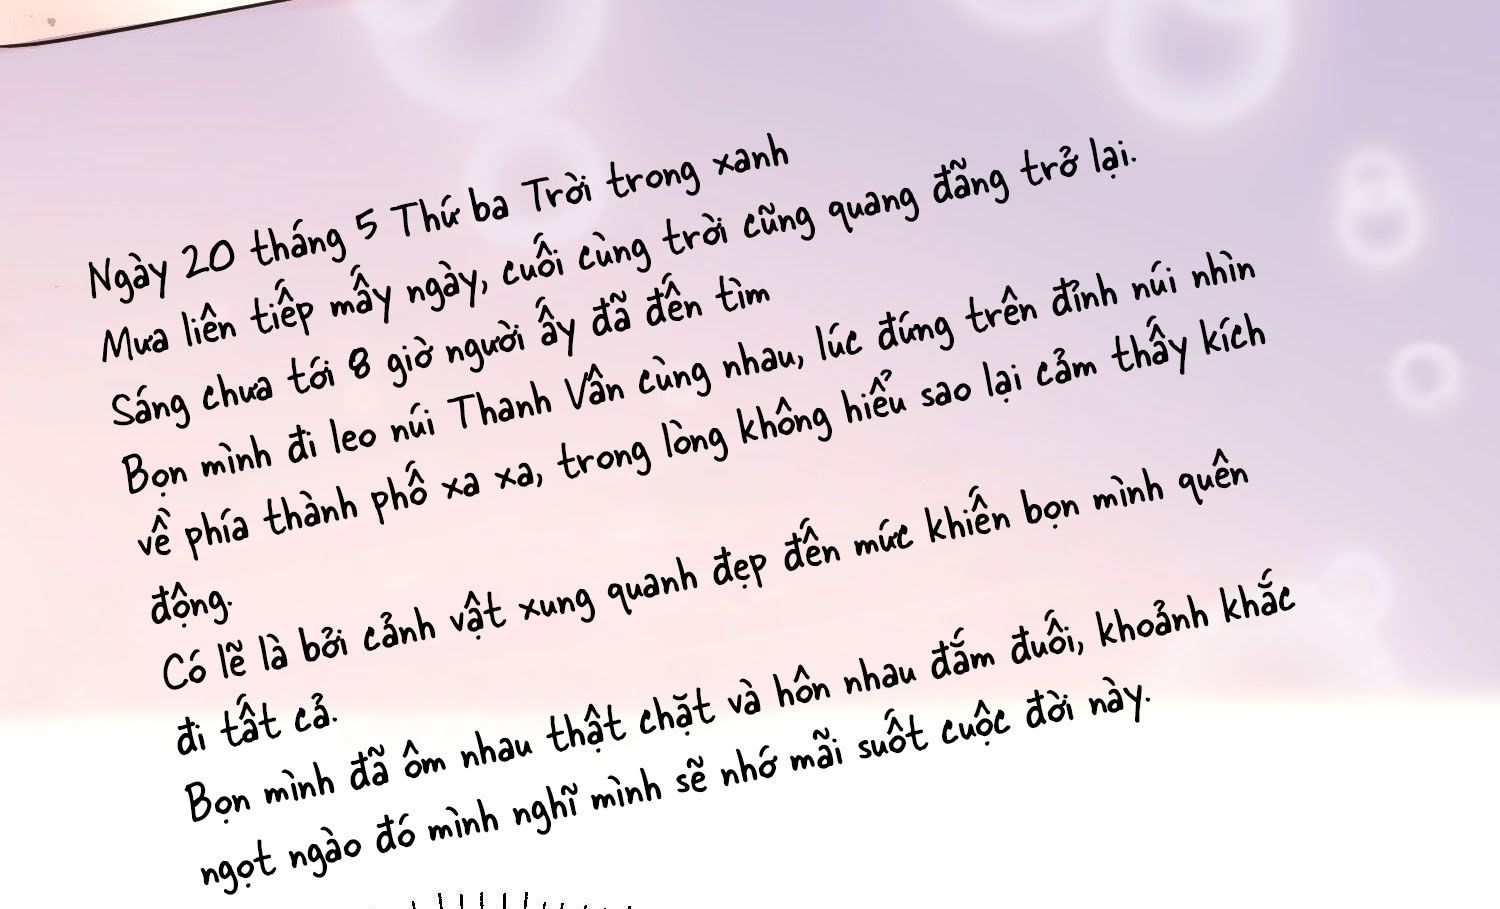 Ngày 20 tháng 5 Thứ ba Trời trong xanh
Mưa liên tiếp mấy ngày, cuối cùng trời cũng quang đãng trở lại.
Sáng chưa tới 8 giờ người ấy đã đến tìm
Bọn mình đi leo núi Thanh Vân cùng nhau, lúc đứng trên đỉnh núi nhìn
về phía thành phố xa xa, trong lòng không hiểu sao lại cảm thấy kích
động.
Có lẽ là bởi cảnh vật xung quanh đẹp đến mức khiến bọn mình quên
đi tất cả.
Bọn mình đã ôm nhau thật chặt và hôn nhau đắm đuối, khoảnh khắc
ngọt ngào đó mình nghĩ mình sẽ nhớ mãi suốt cuộc đời này.